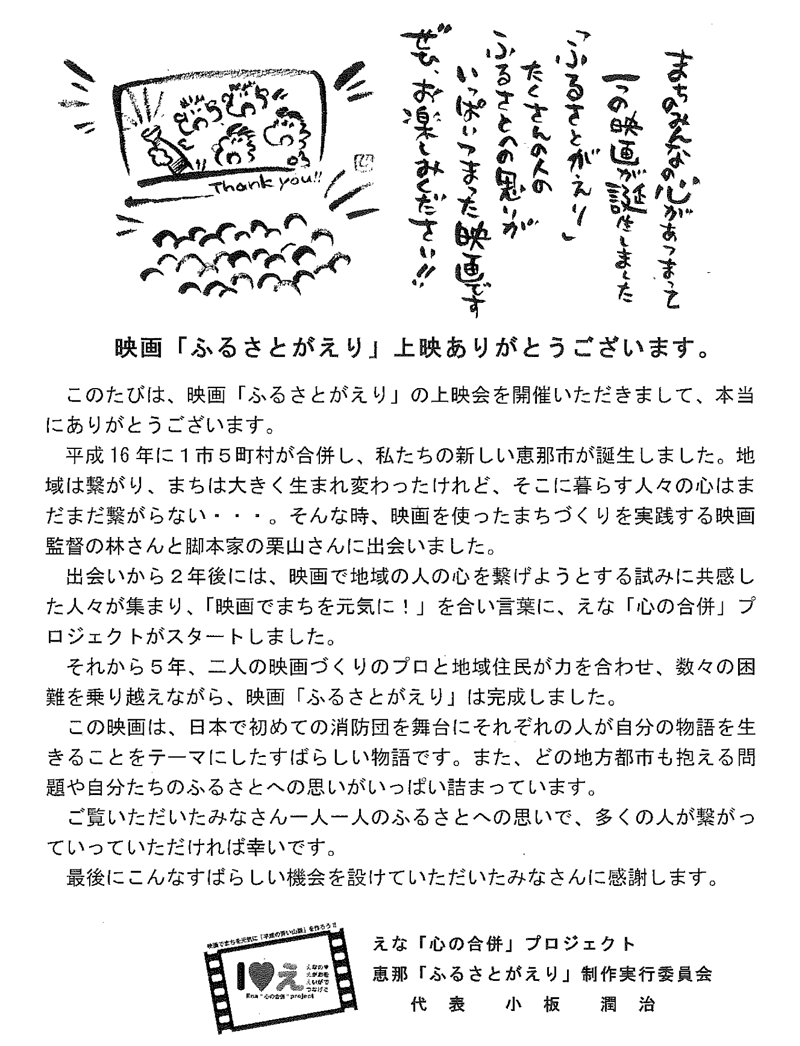 まちのみんなの心があつまって
一つの映画が誕生しました
「ふるさとがえり」
たくさんの人の
ふるさとへの思いが
いっぱいつまった映画です
ぜひ、お楽しみください!!
Thank you!!
映画「ふるさとがえり」上映ありがとうございます。
このたびは、映画「ふるさとがえり」の上映会を開催いただきまして、本当
にありがとうございます。
平成16年に1市5町村が合併し、私たちの新しい恵那市が誕生しました。地
域は繋がり、まちは大きく生まれ変わったけれど、そこに暮らす人々の心はま
だまだ繋がらない・・・。そんな時、映画を使ったまちづくりを実践する映画
監督の林さんと脚本家の栗山さんに出会いました。
出会いから2年後には、映画で地域の人の心を繋げようとする試みに共感し
た人々が集まり、「映画でまちを元気に!」を合い言葉に、えな「心の合併」プ
ロジェクトがスタートしました。
それから5年、二人の映画づくりのプロと地域住民が力を合わせ、数々の困
難を乗り越えながら、映画「ふるさとがえり」は完成しました。
この映画は、日本で初めての消防団を舞台にそれぞれの人が自分の物語を生
きることをテーマにしたすばらしい物語です。また、どの地方都市も抱える問
題や自分たちのふるさとへの思いがいっぱい詰まっています。
ご覧いただいたみなさん一人一人のふるさとへの思いで、多くの人が繋がっ
ていっていただければ幸いです。
最後にこんなすばらしい機会を設けていただいたみなさんに感謝します。
映画でまちを元気に「平成の青い山脈」を作ろう!!
I♥え
えなの
えがおを
えいがで
つなげる
Ena "心の合併" project
えな「心の合併」プロジェクト
恵那「ふるさとがえり」制作実行委員会
代 表 小 板 潤 治